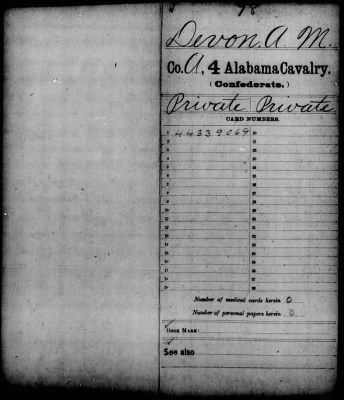 78
Devon, A. M.
Co. A, 4 Alabama Cavalry.
(Confederate.)
Private Private
CARD NUMBERS.
1 44339069
Number of medical cards herein 0
Number of personal papers herein 0
BOOK MARK:
See also